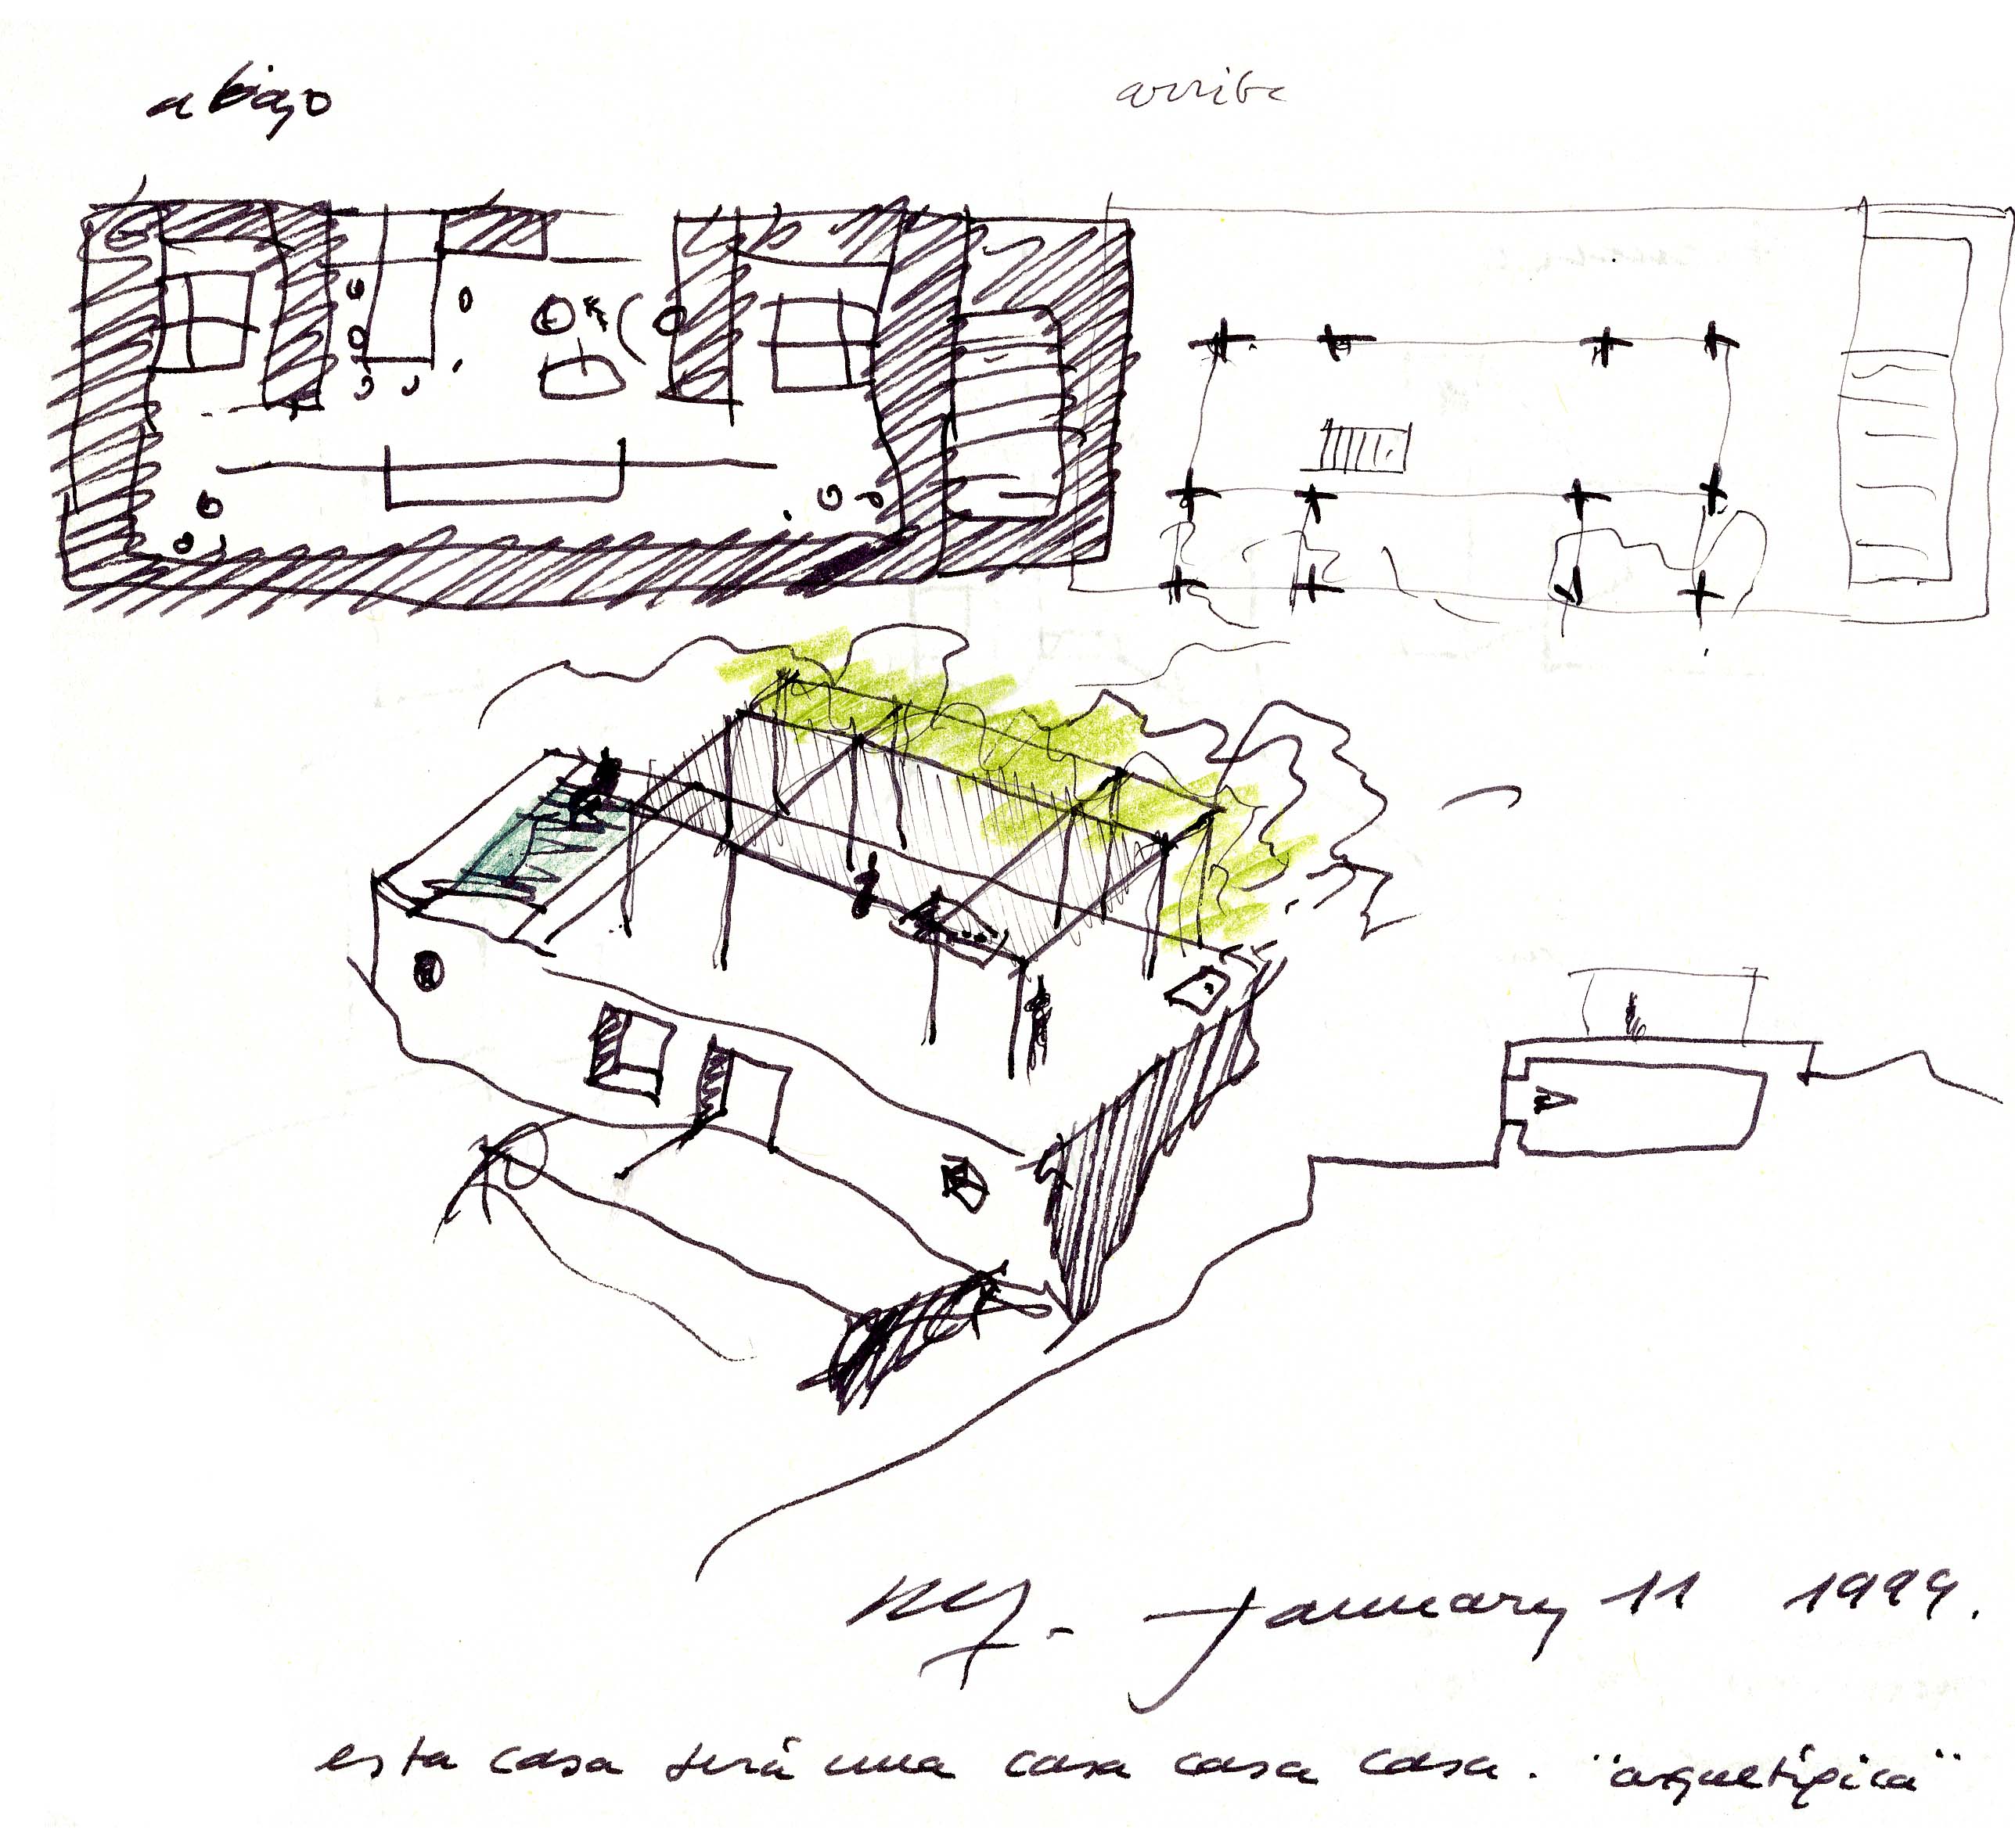 abajo
arriba
NY - January 11 1999.
esta casa será una casa casa casa. "arquetípica"